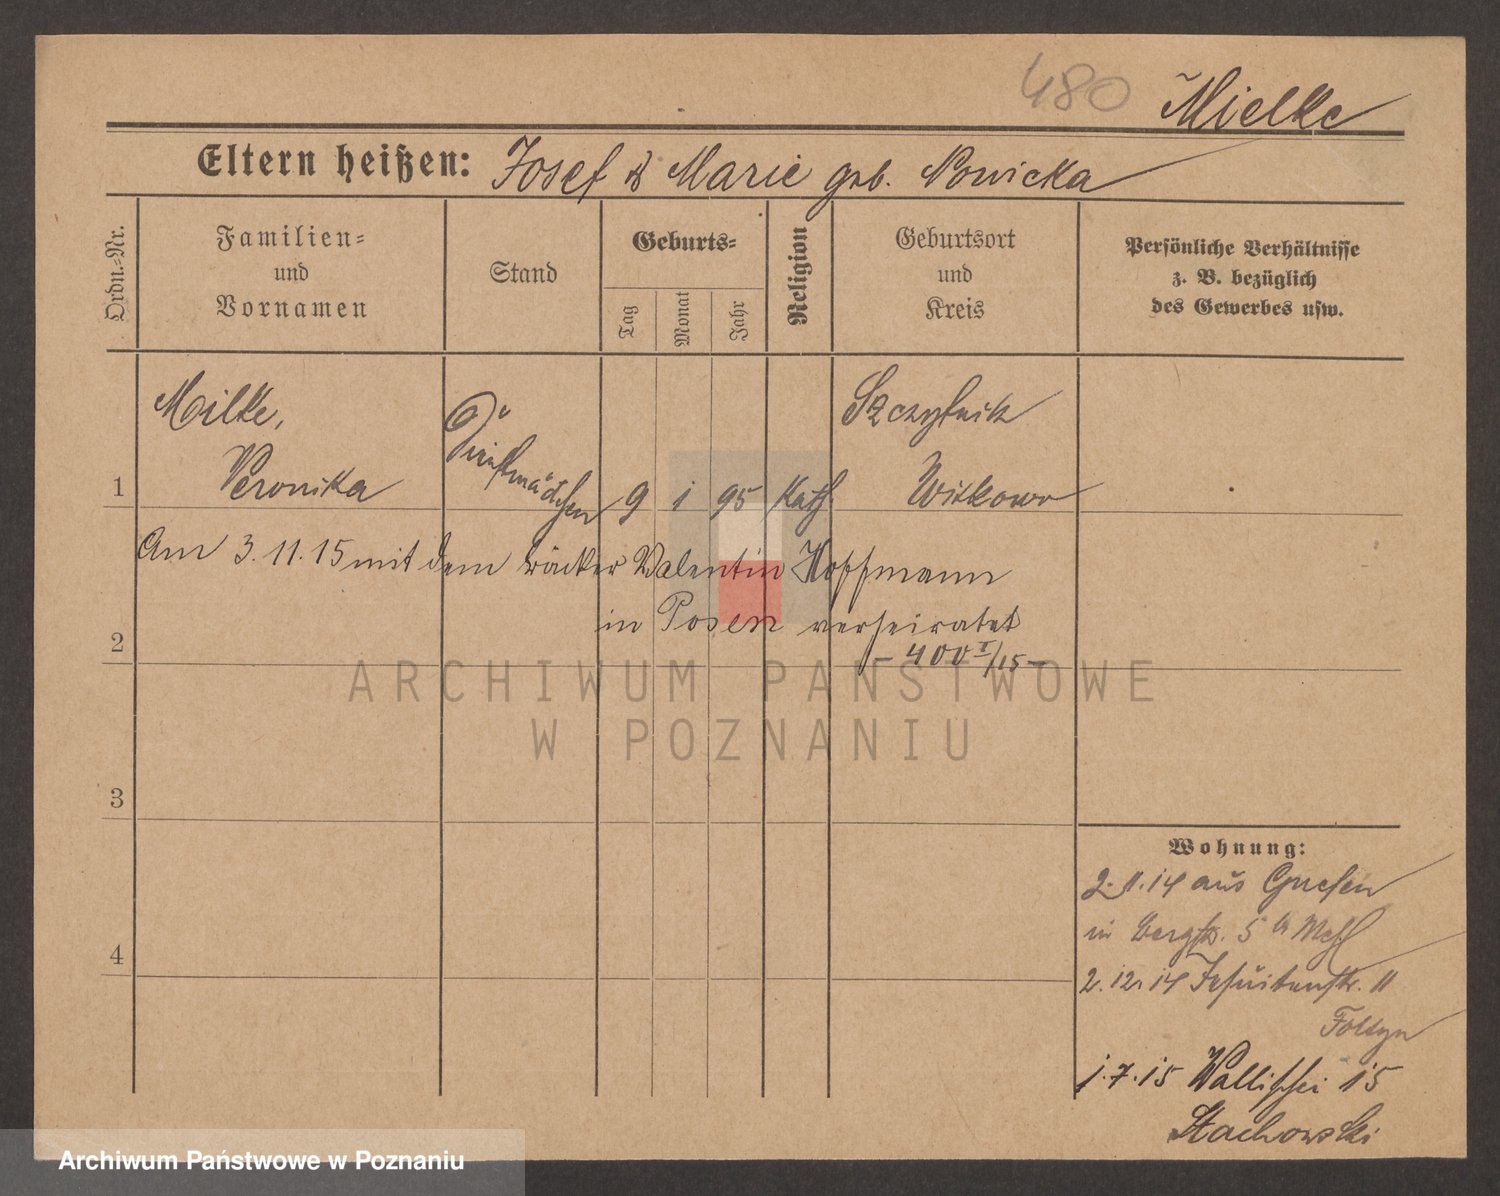 480
Mielke
Eltern heißen: Josef & Marie geb. Nowicka
Ordn.=Nr.
Familien=
und
Vornamen
Stand
Geburts=
Tag
Monat
Jahr
Religion
Geburtsort
und
Kreis
Persönliche Verhältnisse
z. B. bezüglich
des Gewerbes usw.
1
Milke,
Veronika
Dienstmädchen
9 1 95 kath
Szczytnik
Witkowo
Am 3.11.15 mit dem Bäcker Valentin Hoffmann
2
in Posen verheiratet
- 400 I/15 -
ARCHIWUM PAŃSTWOWE
W POZNANIU
3
4
Wohnung:
2.11.14 aus Gnesen
in Bergstr. 5
2.12.14 Jesuitenstr. 11
1.7.15 Wallischei 15
Stachowski
Archiwum Państwowe w Poznaniu